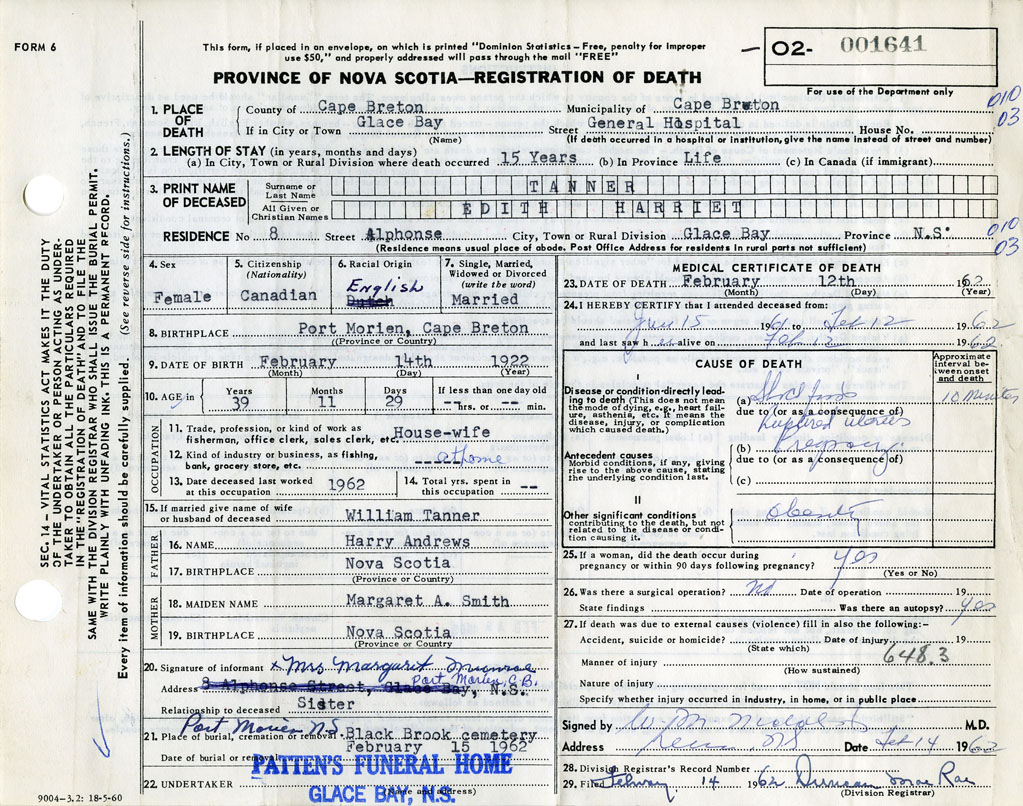 FORM 6
This form, if placed in an envelope, on which is printed "Dominion Statistics – Free, penalty for improper
use $50," and properly addressed will pass through the mail "FREE"
PROVINCE OF NOVA SCOTIA—REGISTRATION OF DEATH
02- 001641
For use of the Department only
010
03
1. PLACE OF DEATH
County of Cape Breton Municipality of Cape Breton
If in City or Town Glace Bay Street General Hospital House No.
(Name) (If death occurred in a hospital or institution, give the name instead of street and number)
2. LENGTH OF STAY (in years, months and days)
(a) In City, Town or Rural Division where death occurred 15 Years (b) In Province Life (c) In Canada (if immigrant)
3. PRINT NAME OF DECEASED
Surname or Last Name TANNER
All Given or Christian Names EDITH HARRIET
RESIDENCE No 8 Street Alphonse City, Town or Rural Division Glace Bay Province N.S.
(Residence means usual place of abode. Post Office Address for residents in rural parts not sufficient)
010
03
4. Sex Female
5. Citizenship (Nationality) Canadian
6. Racial Origin English Dutch
7. Single, Married, Widowed or Divorced (write the word) Married
8. BIRTHPLACE Port Morien, Cape Breton
(Province or Country)
9. DATE OF BIRTH February 14th 1922
(Month) (Day) (Year)
10. AGE in Years 39 Months 11 Days 29 If less than one day old -- hrs. or -- min.
OCCUPATION
11. Trade, profession, or kind of work as fisherman, office clerk, sales clerk, etc. House-wife
12. Kind of industry or business, as fishing, bank, grocery store, etc. at home
13. Date deceased last worked at this occupation 1962
14. Total yrs. spent in this occupation --
15. If married give name of wife or husband of deceased William Tanner
FATHER
16. NAME Harry Andrews
17. BIRTHPLACE Nova Scotia
(Province or Country)
MOTHER
18. MAIDEN NAME Margaret A. Smith
19. BIRTHPLACE Nova Scotia
(Province or Country)
20. Signature of informant x Mrs Margaret Munroe
Port Morien, C.B.
Address 8 Alphonse Street, Glace Bay, N.S.
Relationship to deceased Sister
Port Morien N.S.
21. Place of burial, cremation or removal Black Brook cemetery
Date of burial or removal February 15 1962
22. UNDERTAKER PATTEN'S FUNERAL HOME
(Name and address)
GLACE BAY, N.S.
9004-3.2: 18-5-60
MEDICAL CERTIFICATE OF DEATH
23. DATE OF DEATH February 12th 1962
(Month) (Day) (Year)
24. I HEREBY CERTIFY that I attended deceased from:
15 1961 to Feb 12 1962
and last saw h er alive on Feb 12 1962
CAUSE OF DEATH
Approximate interval between onset and death
I
Disease or condition directly leading to death (This does not mean the mode of dying, e.g., heart failure, asthenia, etc. It means the disease, injury, or complication which caused death.)
(a) Shock from 10 Minutes
due to (or as a consequence of)
ruptured uterus
Antecedent causes
Morbid conditions, if any, giving rise to the above cause, stating the underlying condition last.
(b) Pregnancy
due to (or as a consequence of)
(c)
II
Other significant conditions
contributing to the death, but not related to the disease or condition causing it.
Obesity
25. If a woman, did the death occur during pregnancy or within 90 days following pregnancy? Yes
(Yes or No)
26. Was there a surgical operation? No Date of operation 19
State findings Was there an autopsy? Yes
27. If death was due to external causes (violence) fill in also the following:-
Accident, suicide or homicide? Date of injury 19
(State which)
648.3
Manner of injury
(How sustained)
Nature of injury
Specify whether injury occurred in industry, in home, or in public place
Signed by W. M. M.D.
Address NS Date Feb 14 1962
28. Division Registrar's Record Number
29. Filed February 14 1962 Duncan MacRae
(Division Registrar)
SEC. 14 – VITAL STATISTICS ACT MAKES IT THE DUTY
OF THE UNDERTAKER OR PERSON ACTING AS UNDER-
TAKER TO OBTAIN ALL THE PARTICULARS REQUIRED
IN THE "REGISTRATION OF DEATH" AND TO FILE THE
SAME WITH THE DIVISION REGISTRAR WHO SHALL ISSUE THE BURIAL PERMIT.
WRITE PLAINLY WITH UNFADING INK. THIS IS A PERMANENT RECORD.
Every item of information should be carefully supplied. (See reverse side for instructions.)